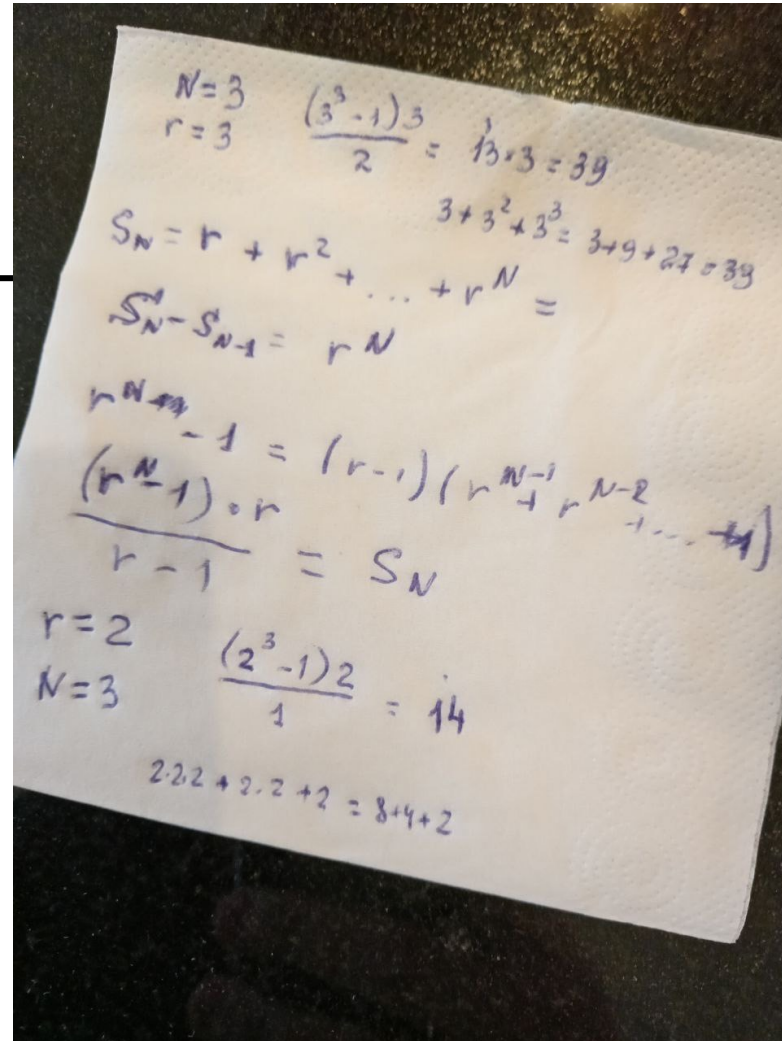 N=3
r=3
(3³-1)3 / 2 = 13·3=39
3+3²+3³=3+9+27=39
S_N = r + r² + ... + r^N =
S_N - S_{N-1} = r^N
r^N - 1 = (r-1)(r^{N-1} + r^{N-2} + ... + 1)
(r^N-1)·r / r-1 = S_N
r=2
N=3
(2³-1)2 / 1 = 14
2·2·2+2·2+2=8+4+2